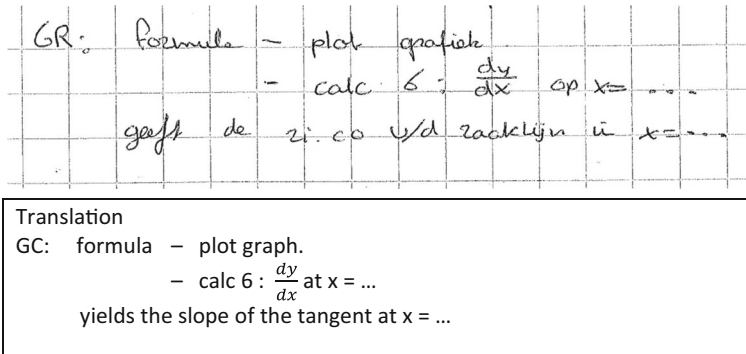 GR: formule - plot grafiek
- calc 6: dy/dx op x= ....
geeft de ri.co v/d raaklijn in x=....
Translation
GC: formula – plot graph.
– calc 6 : dy/dx at x = ...
yields the slope of the tangent at x = ...